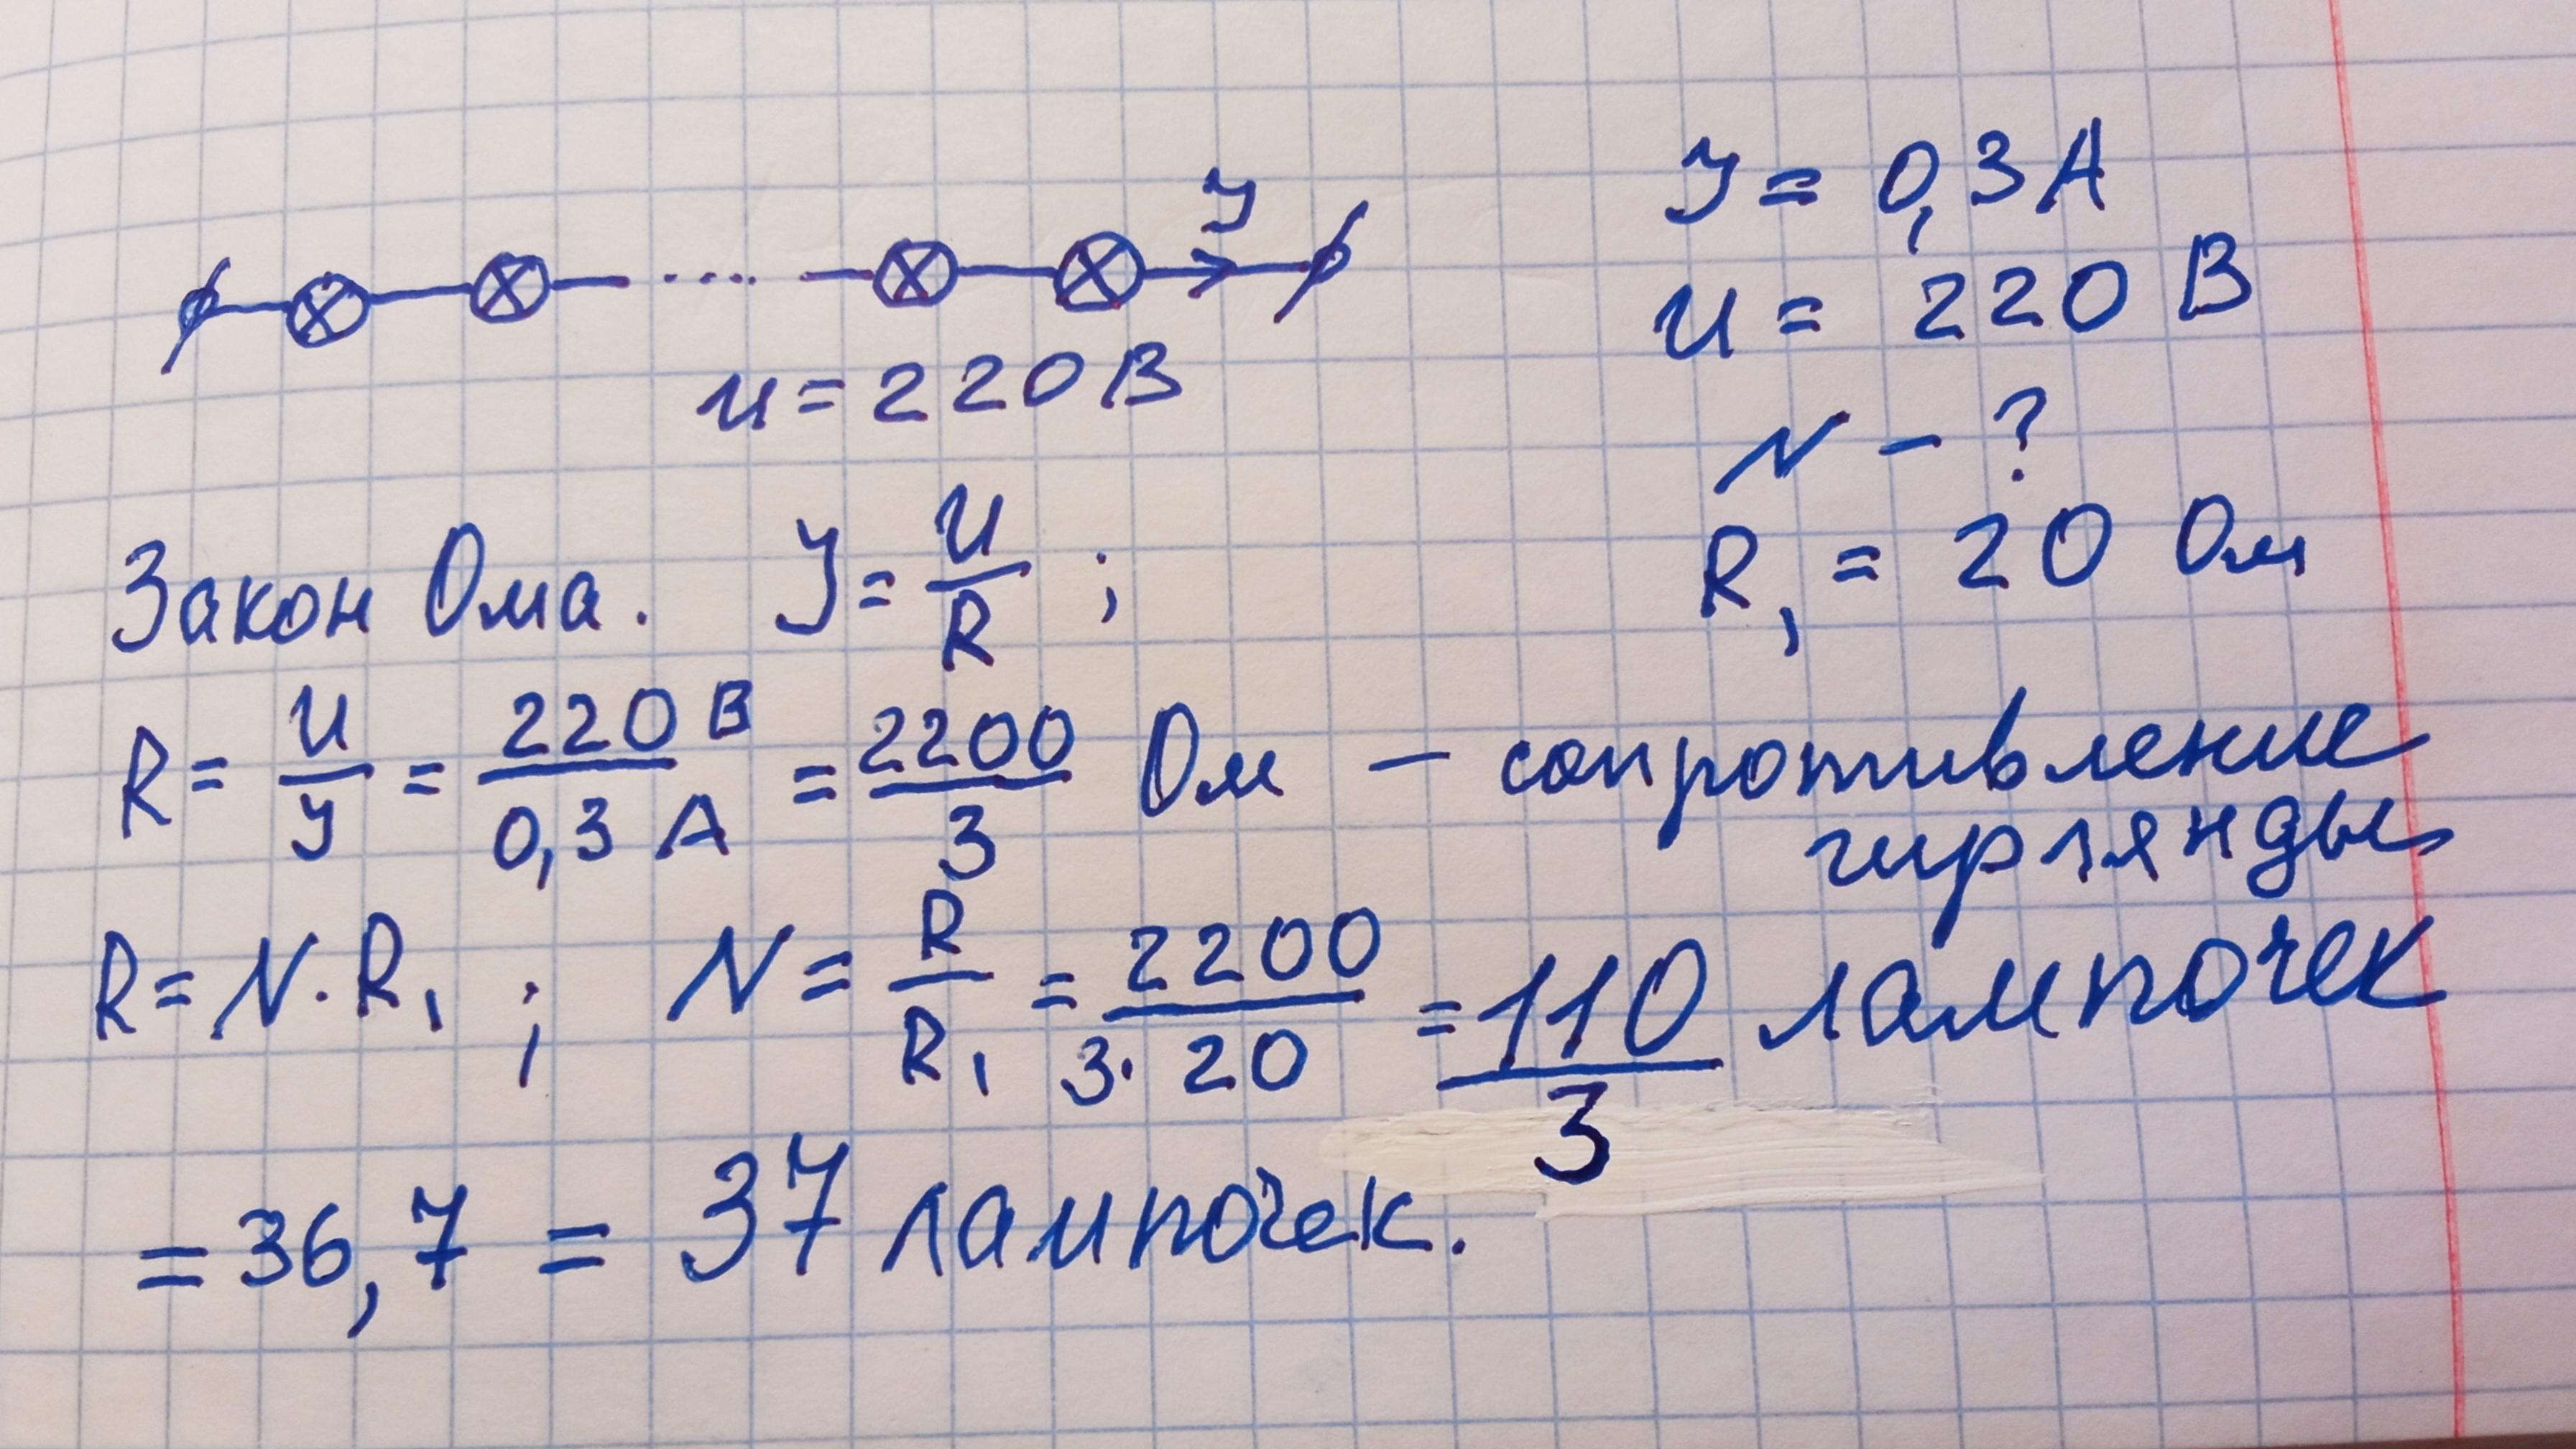 У
У = 0,3 А
u = 220 В
u = 220 В
N - ?
R₁ = 20 Ом
Закон Ома. У = u/R ;
R = u/У = 220 В/0,3 А = 2200/3 Ом - сопротивление
гирлянды
R = N · R₁ ; N = R/R₁ = 2200/3·20 = 110/3 лампочек
= 36,7 = 37 лампочек.